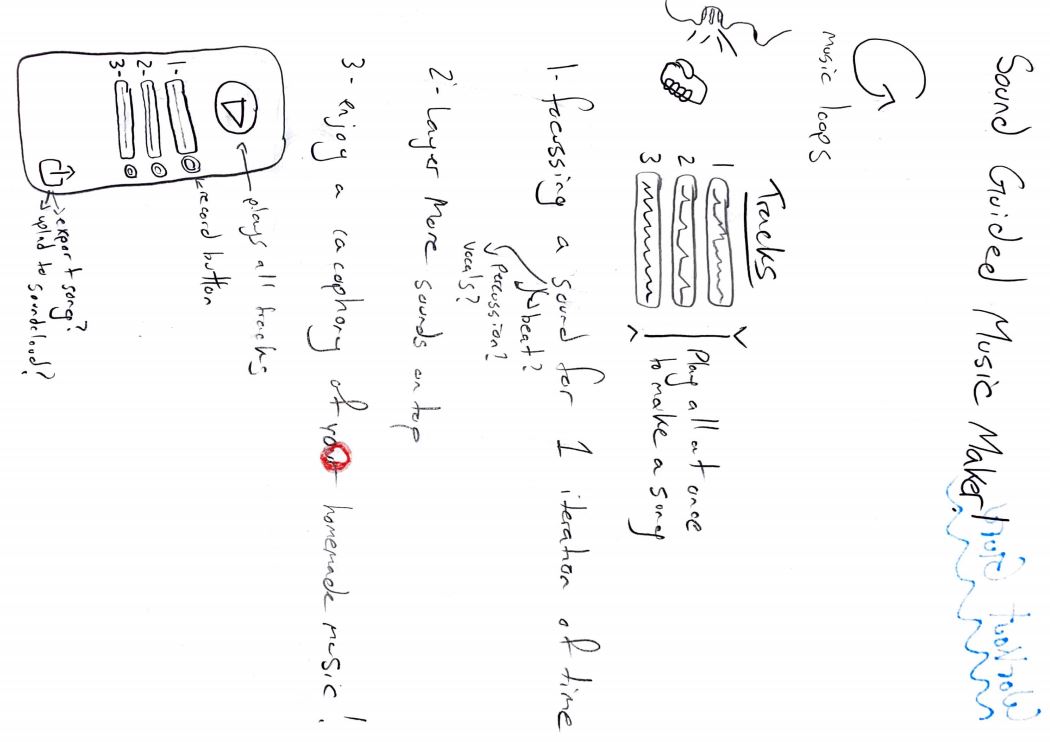 Sound Guided Music Maker!
Workout Diary
music loops
Tracks
1
2
3
Play all at once
to make a song
1- focussing a sound for 1 iteration of time
beat?
Percussion?
vocals?
2- Layer More sounds on top
3- enjoy a cacophony of your homemade music!
plays all tracks
record button
1-
2-
3-
export song?
upload to soundcloud?